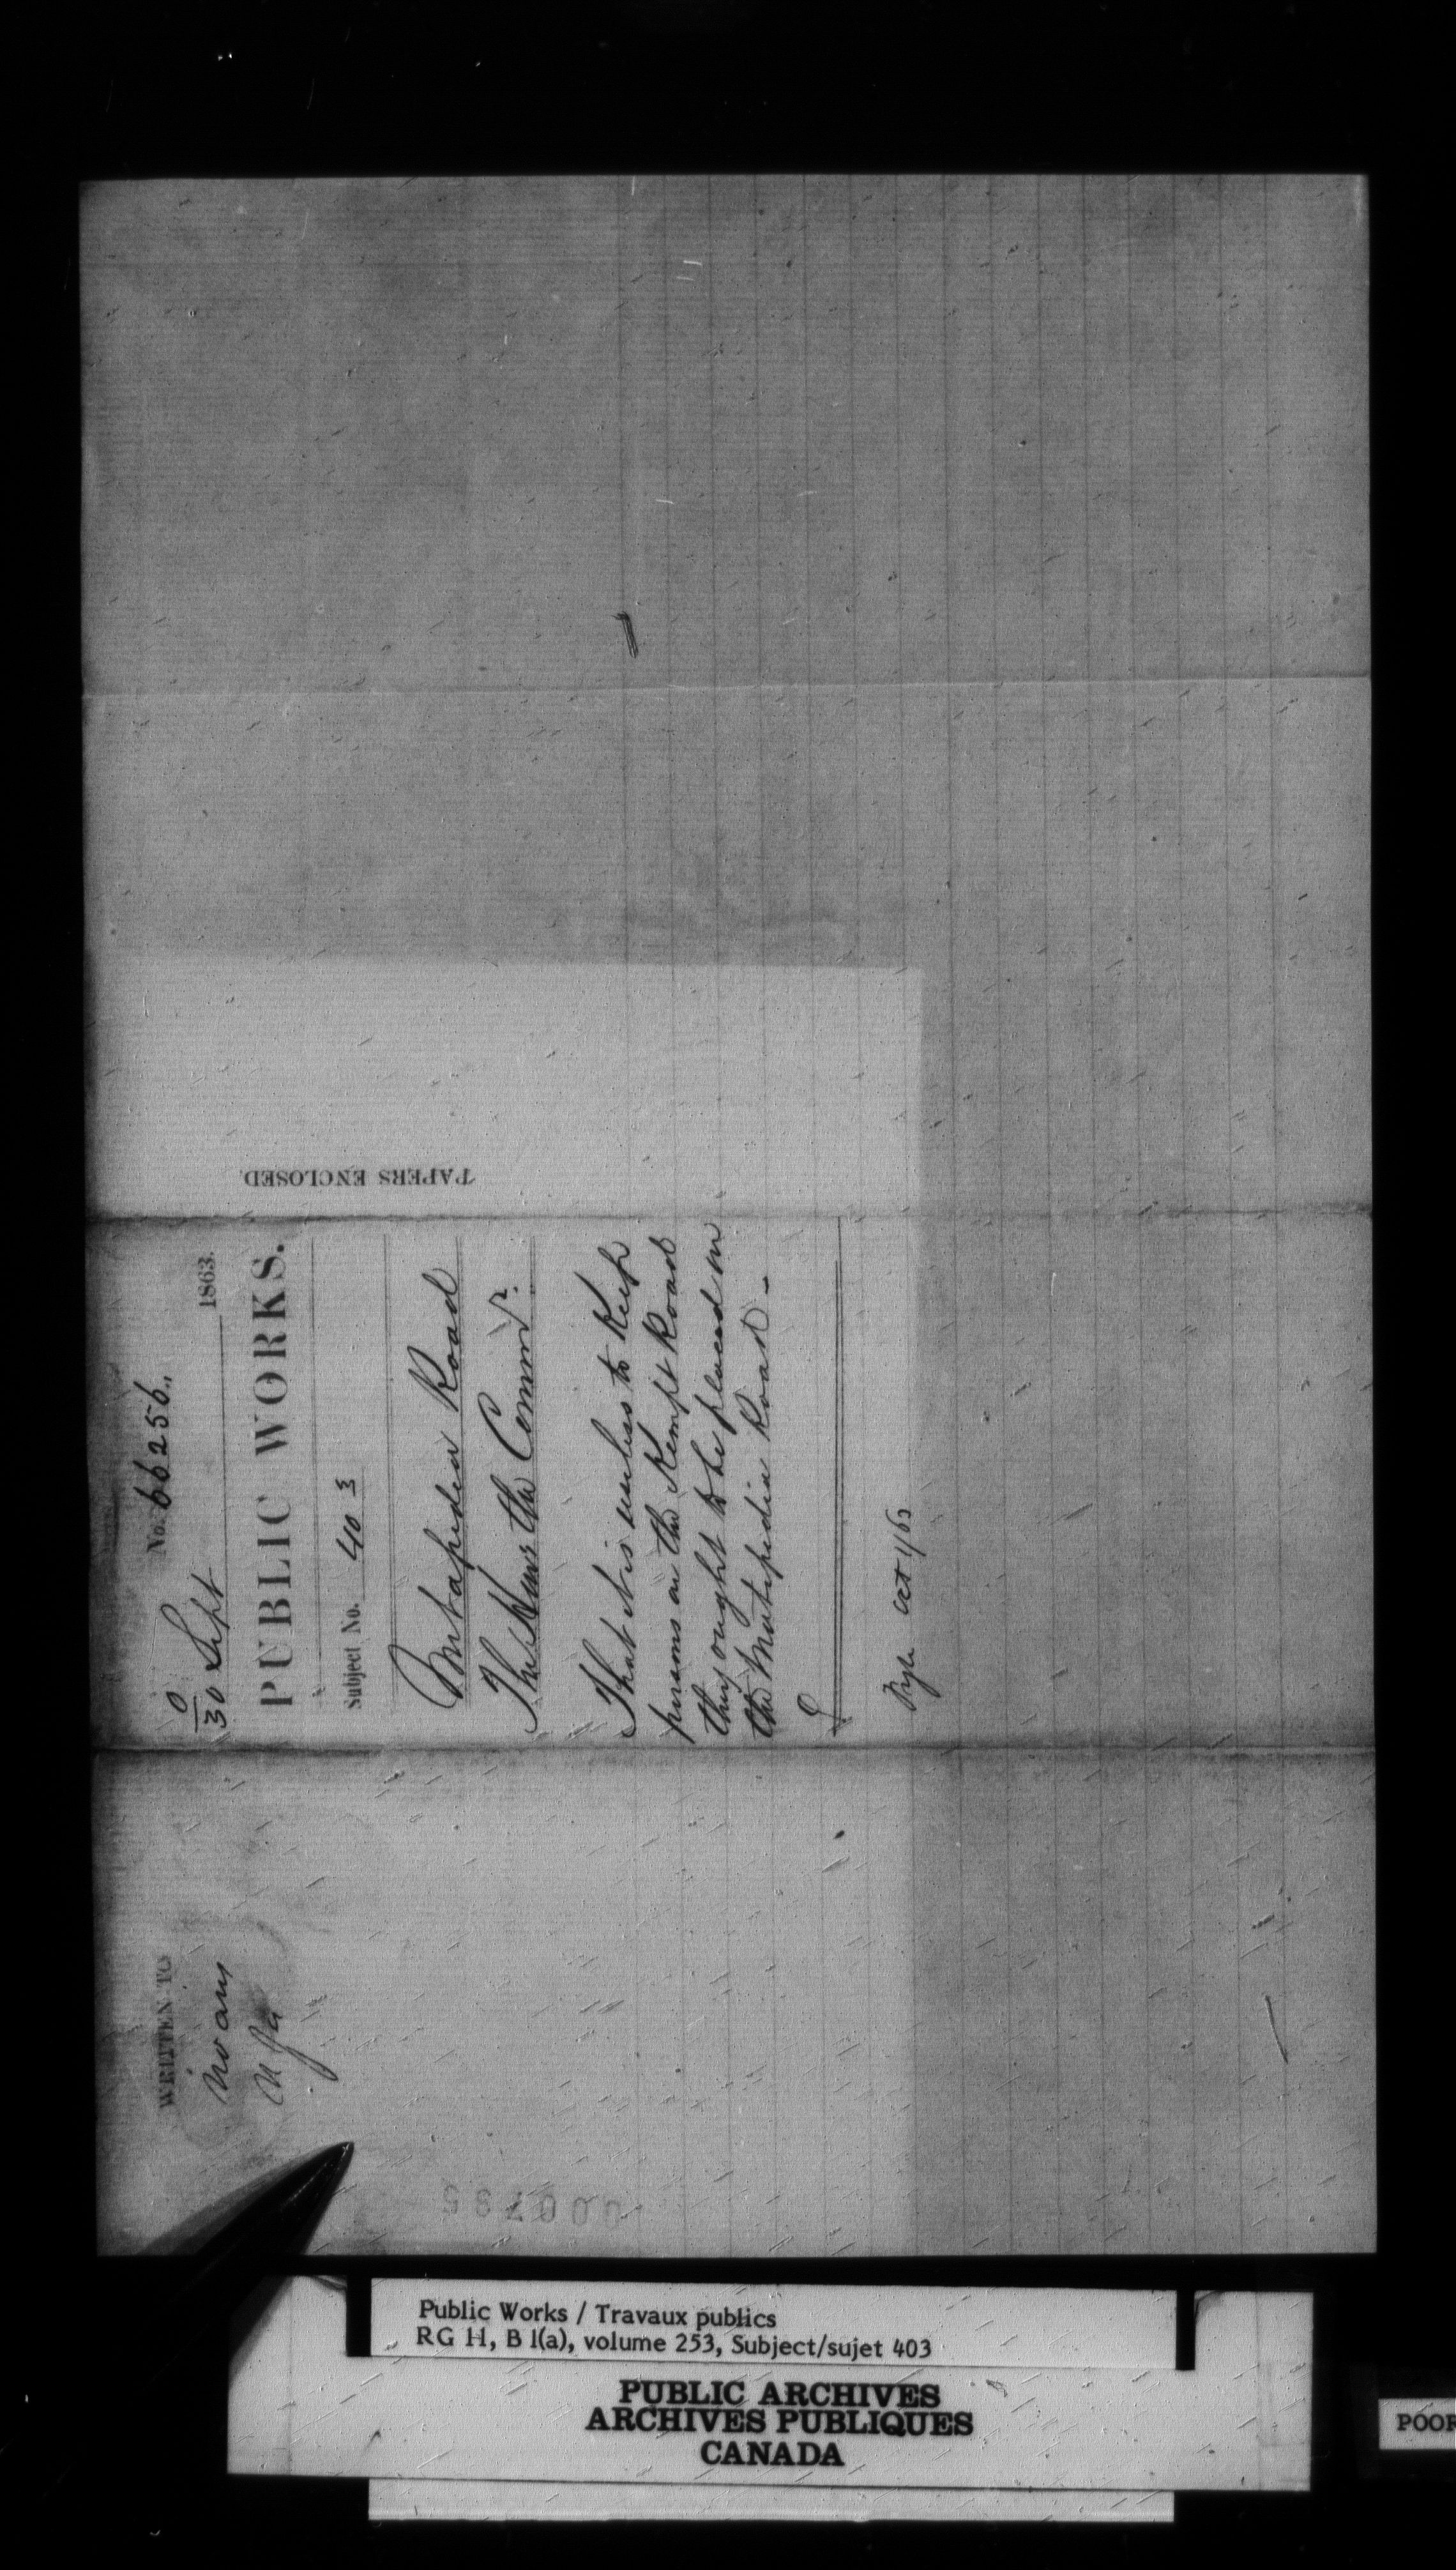 No. 66256.
30 Sept 1863.
PUBLIC WORKS.
Subject No. 403
Metapedia Road
The Hon. the Commr.
That it is useless to Keep
persons on the Kempt Road
they ought to be placed on
the Matipedia Road -
Oct 1/63
PAPERS ENCLOSED.
WRITTEN TO
No ans
Public Works / Travaux publics
RG 11, B 1(a), volume 253, Subject/sujet 403
PUBLIC ARCHIVES
ARCHIVES PUBLIQUES
CANADA
POOR